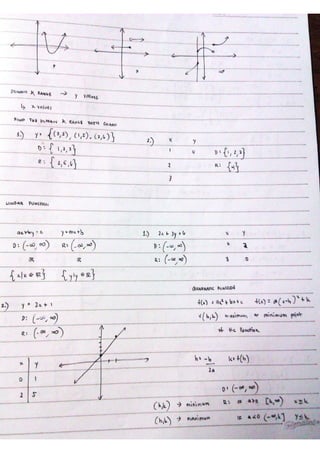 DOMAIN & RANGE → y VALUES
↳ x VALUES
FIND THE DOMAIN & RANGE BOTH GRAPH
1.) y = {(3,2), (1,5), (2,6)}
D: { 1,2,3}
R: { 2,5,6}
2.) x y
1 4 D: {1,2,3}
2 R: {4}
3
LINEAR FUNCTION
y = mx + b
D: (-∞, ∞) R: (-∞, ∞)
ℝ ℝ
{x|x ∈ ℝ} {y|y ∈ ℝ}
1.) 2x + 3y = 6 x y
D: (-∞, ∞)
R: (-∞, ∞) 3 0
2.) y = 2x + 1
D: (-∞, ∞)
R: (-∞, ∞)
x y
0 1
2 5
QUADRATIC FUNCTION
f(x) = ax² + bx + c f(x) = a(x-h)² + k
v(h,k) maximum or minimum point
of the function
h = -b/2a k = f(h)
D: (-∞, ∞)
(h,k) → minimum R: a>0 [k, ∞)
(h,k) → maximum a<0 (-∞, k] y ≤ k